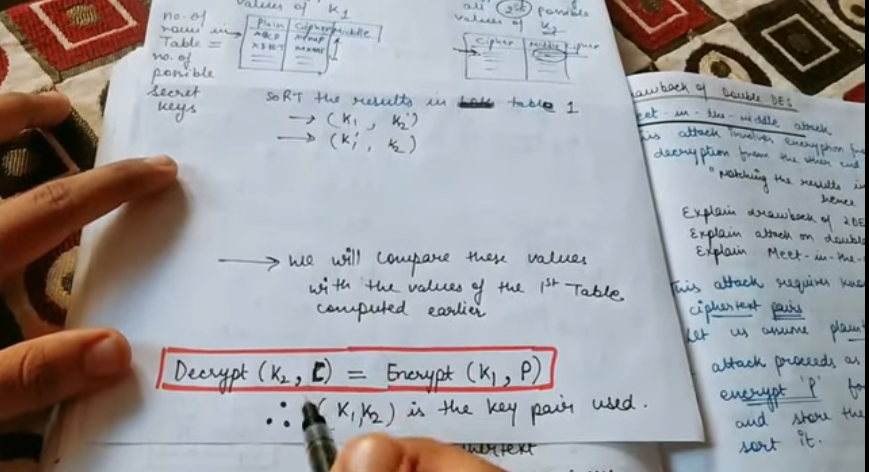 values of K1
no. of
rows in
Table =
no. of
possible
secret
keys
Plain Cipher Middle
ABCD
all possible
values of K2
Cipher Middle Cipher
SORT the results in table 1
→ (K1, K2')
→ (K1', K2)
→ we will compare these values
with the values of the 1st Table
computed earlier
Decrypt (K2, C) = Encrypt (K1, P)
∴ (K1, K2) is the key pair used.
awback of Double DES
eet-in-the-middle attack
is attack involves encryption fr
decryption from the other end
"Matching the results in
hence
Explain drawback of 2DE
Explain attack on double
Explain Meet-in-the-
This attack requires know
ciphertext pairs.
Let us assume plain
attack proceeds as
encrypt 'P' fo
and store the
sort it.
hertext